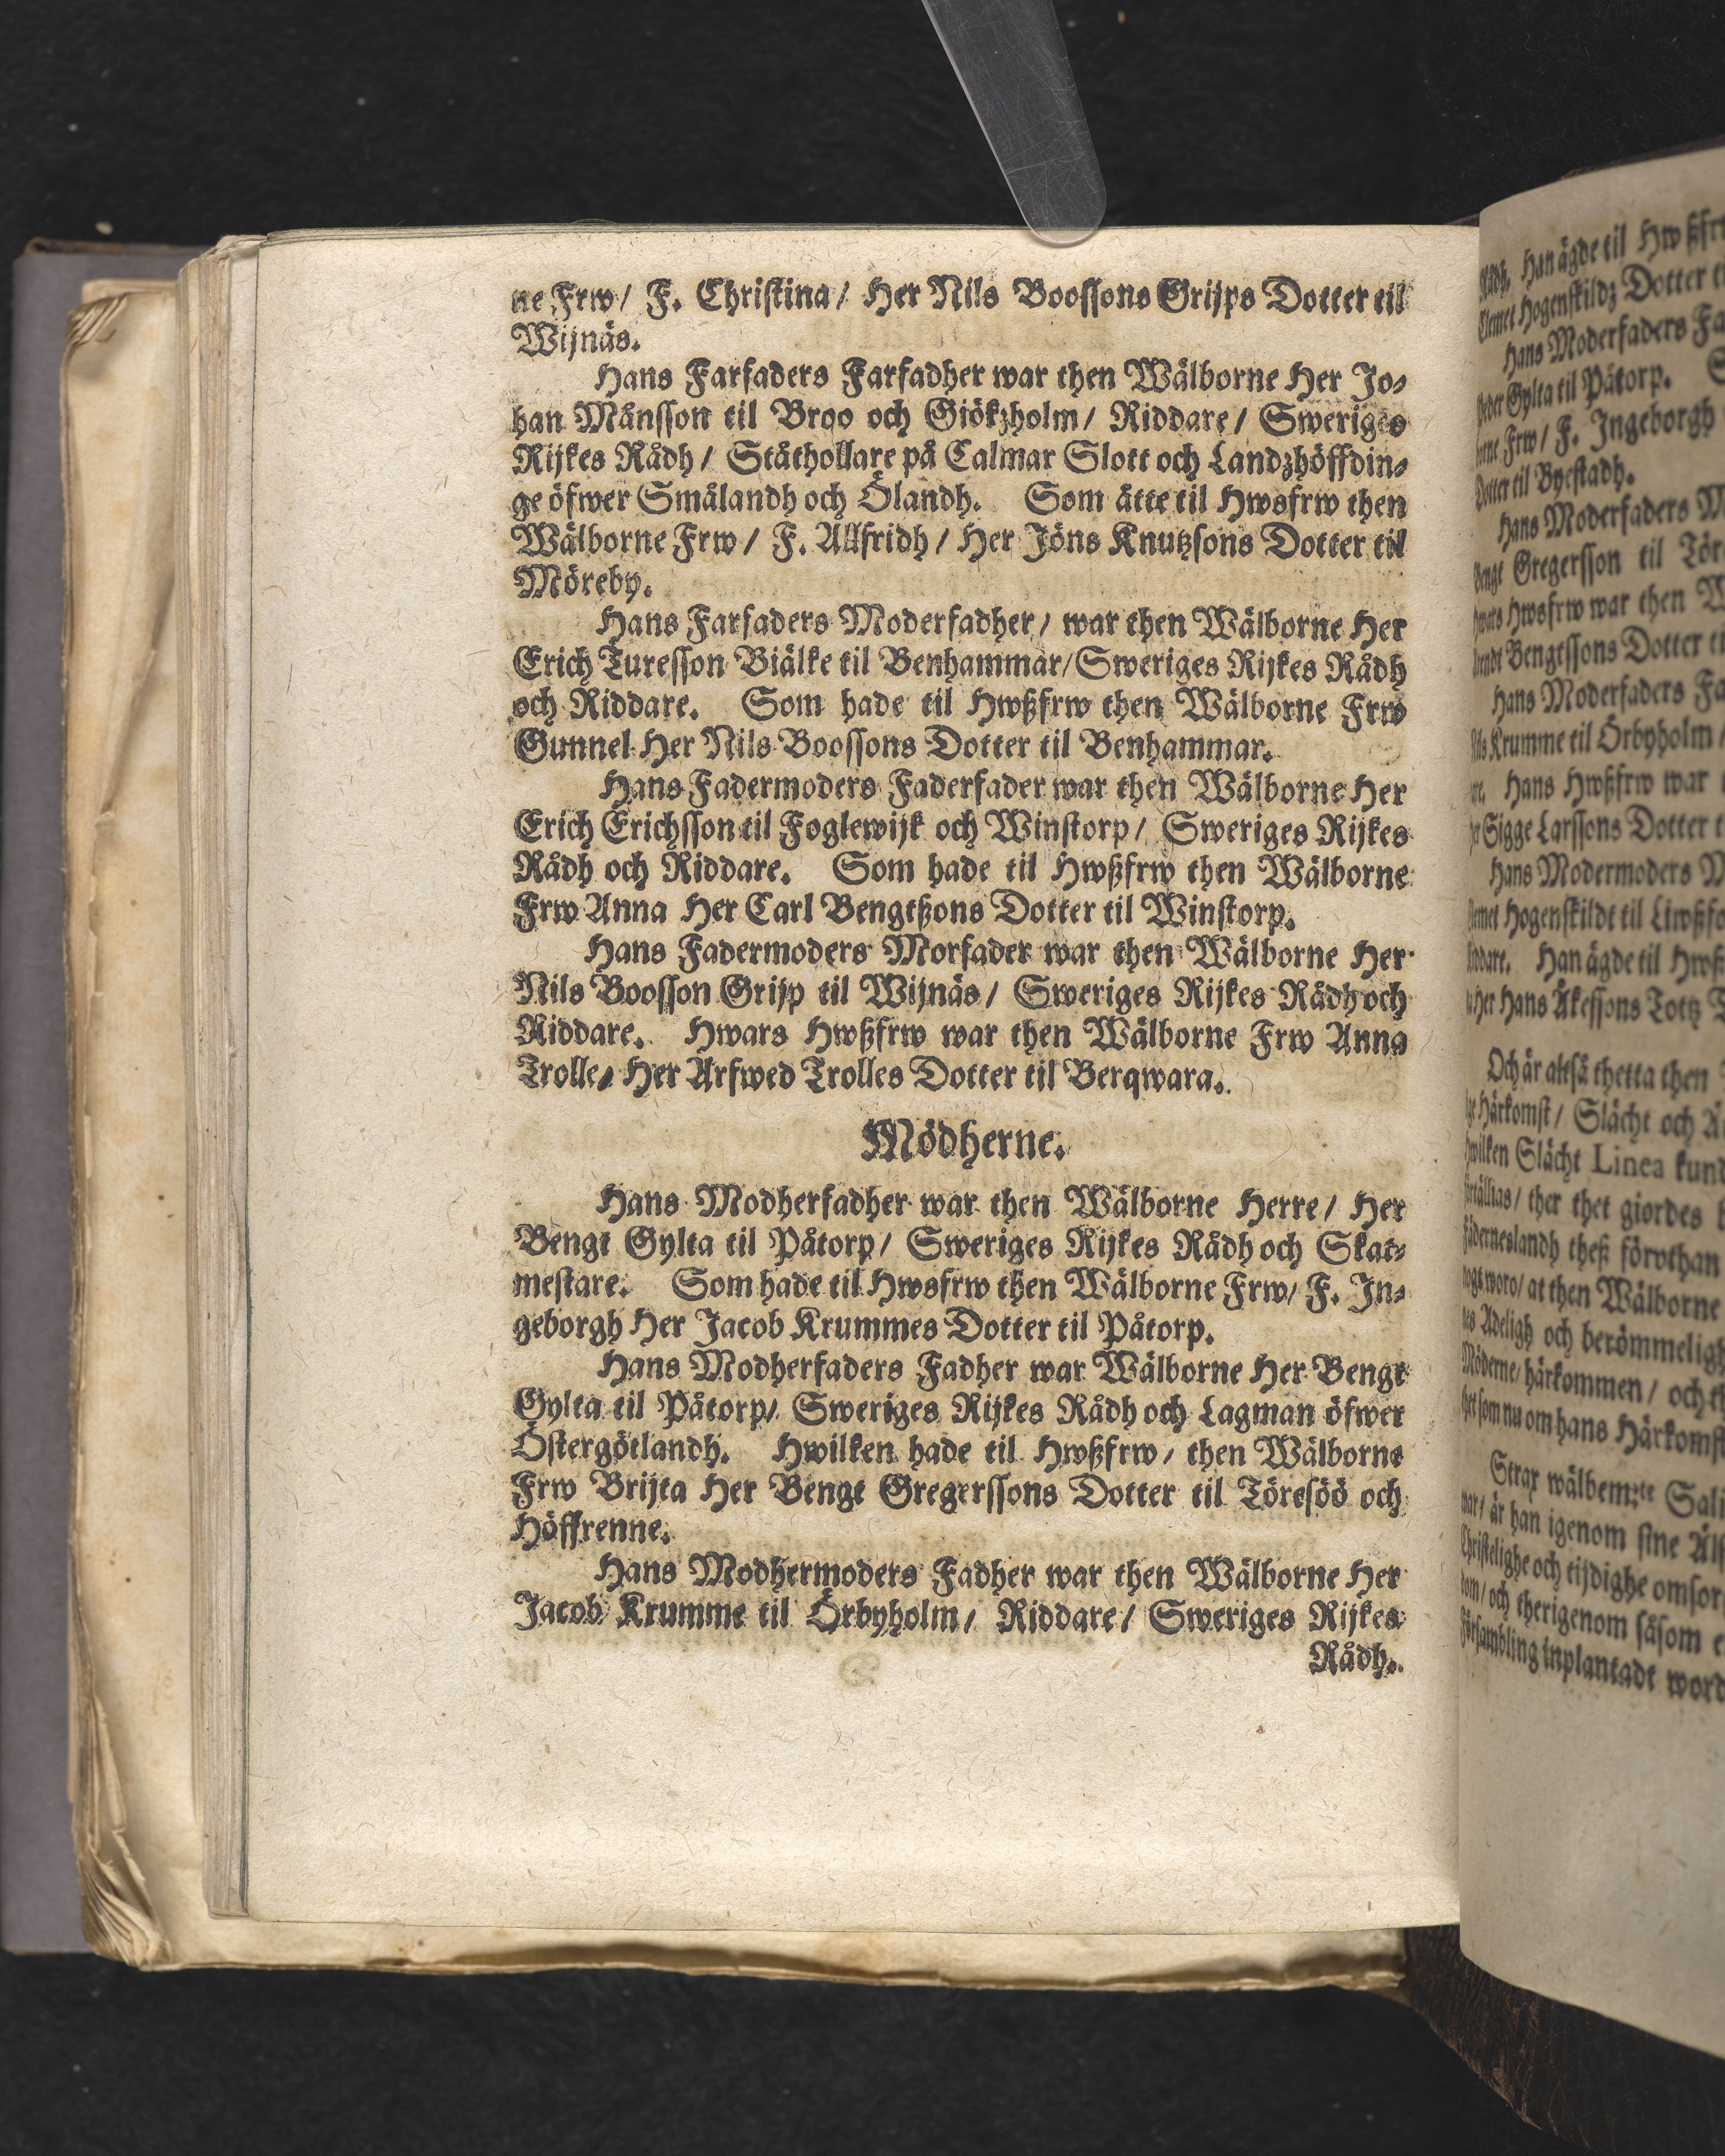 ne Frw/ F. Christina/ Her Nils Boossons Grijps Dotter til
Wijnäs.
Hans Farfaders Farfadher war then Wälborne Her Jo-
han Månsson til Broo och Giökzholm/ Riddare/ Sweriges
Rijkes Rådh/ Ståthollare på Calmar Slott och Landzhöffdin-
ge öfwer Smålandh och Ölandh. Som ätte til Hwsfrw then
Wälborne Frw/ F. Allfridh/ Her Jöns Knutzsons Dotter til
Möreby.
Hans Farfaders Moderfadher/ war then Wälborne Her
Erich Turesson Biälke til Benhammar/ Sweriges Rijkes Rådh
och Riddare. Som hade til Hwßfrw then Wälborne Frw
Gunnel Her Nils Boossons Dotter til Benhammar.
Hans Fadermoders Faderfader war then Wälborne Her
Erich Erichsson til Foglewijk och Winstorp/ Sweriges Rijkes
Rådh och Riddare. Som hade til Hwßfrw then Wälborne
Frw Anna Her Carl Bengtßons Dotter til Winstorp.
Hans Fadermoders Morfader war then Wälborne Her
Nils Boosson Grijp til Wijnäs/ Sweriges Rijkes Rådh och
Riddare. Hwars Hwßfrw war then Wälborne Frw Anna
Trolle/ Her Arfwed Trolles Dotter til Berqwara.
Mödherne.
Hans Modherfadher war then Wälborne Herre/ Her
Bengt Gylta til Påtorp/ Sweriges Rijkes Rådh och Skat-
mestare. Som hade til Hwsfrw then Wälborne Frw/ F. In-
geborgh Her Jacob Krummes Dotter til Påtorp.
Hans Modherfaders Fadher war Wälborne Her Bengt
Gylta til Påtorp/ Sweriges Rijkes Rådh och Lagman öfwer
Östergötlandh. Hwilken hade til Hwßfrw/ then Wälborne
Frw Brijta Her Bengt Gregerssons Dotter til Töresöö och
Höffrenne.
Hans Modhermoders Fadher war then Wälborne Her
Jacob Krumme til Örbyholm/ Riddare/ Sweriges Rijkes
Rådh.
Rådh. Han ägde til
Clemet Hogenskildz Dotter
Hans Moderfaders
Gylta til Påtorp.
Frw/ F. Ingeborgh
Dotter til Byestadh.
Hans Moderfaders
Bengt Gregersson til
Hwsfrw war then
Bengtssons Dotter
Hans Moderfaders
Krumme til Örbyholm
Hans Hwßfrw war
Sigge Larssons Dotter
Hans Modermoders
Hogenskildt til
Han ägde til
Her Hans Åkessons Tottz
Och är altså thetta then
Härkomst/ Slächt och
Slächt Linea
ther thet giordes
theß förvthan
woro/ at then Wälborne
Adeligh och
härkommen/ och
som nu om hans
Strax wälbem:te
är han igenom sine
och tijdighe
och therigenom såsom
inplantadt